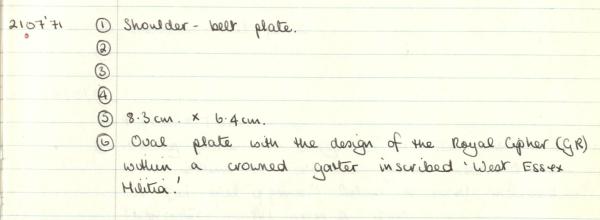 2107'71 ① Shoulder - belt plate.
②
③
④
⑤ 8.3 cm. × 6.4 cm.
⑥ Oval plate with the design of the Royal Cipher (GR)
within a crowned garter inscribed 'West Essex
Militia.'